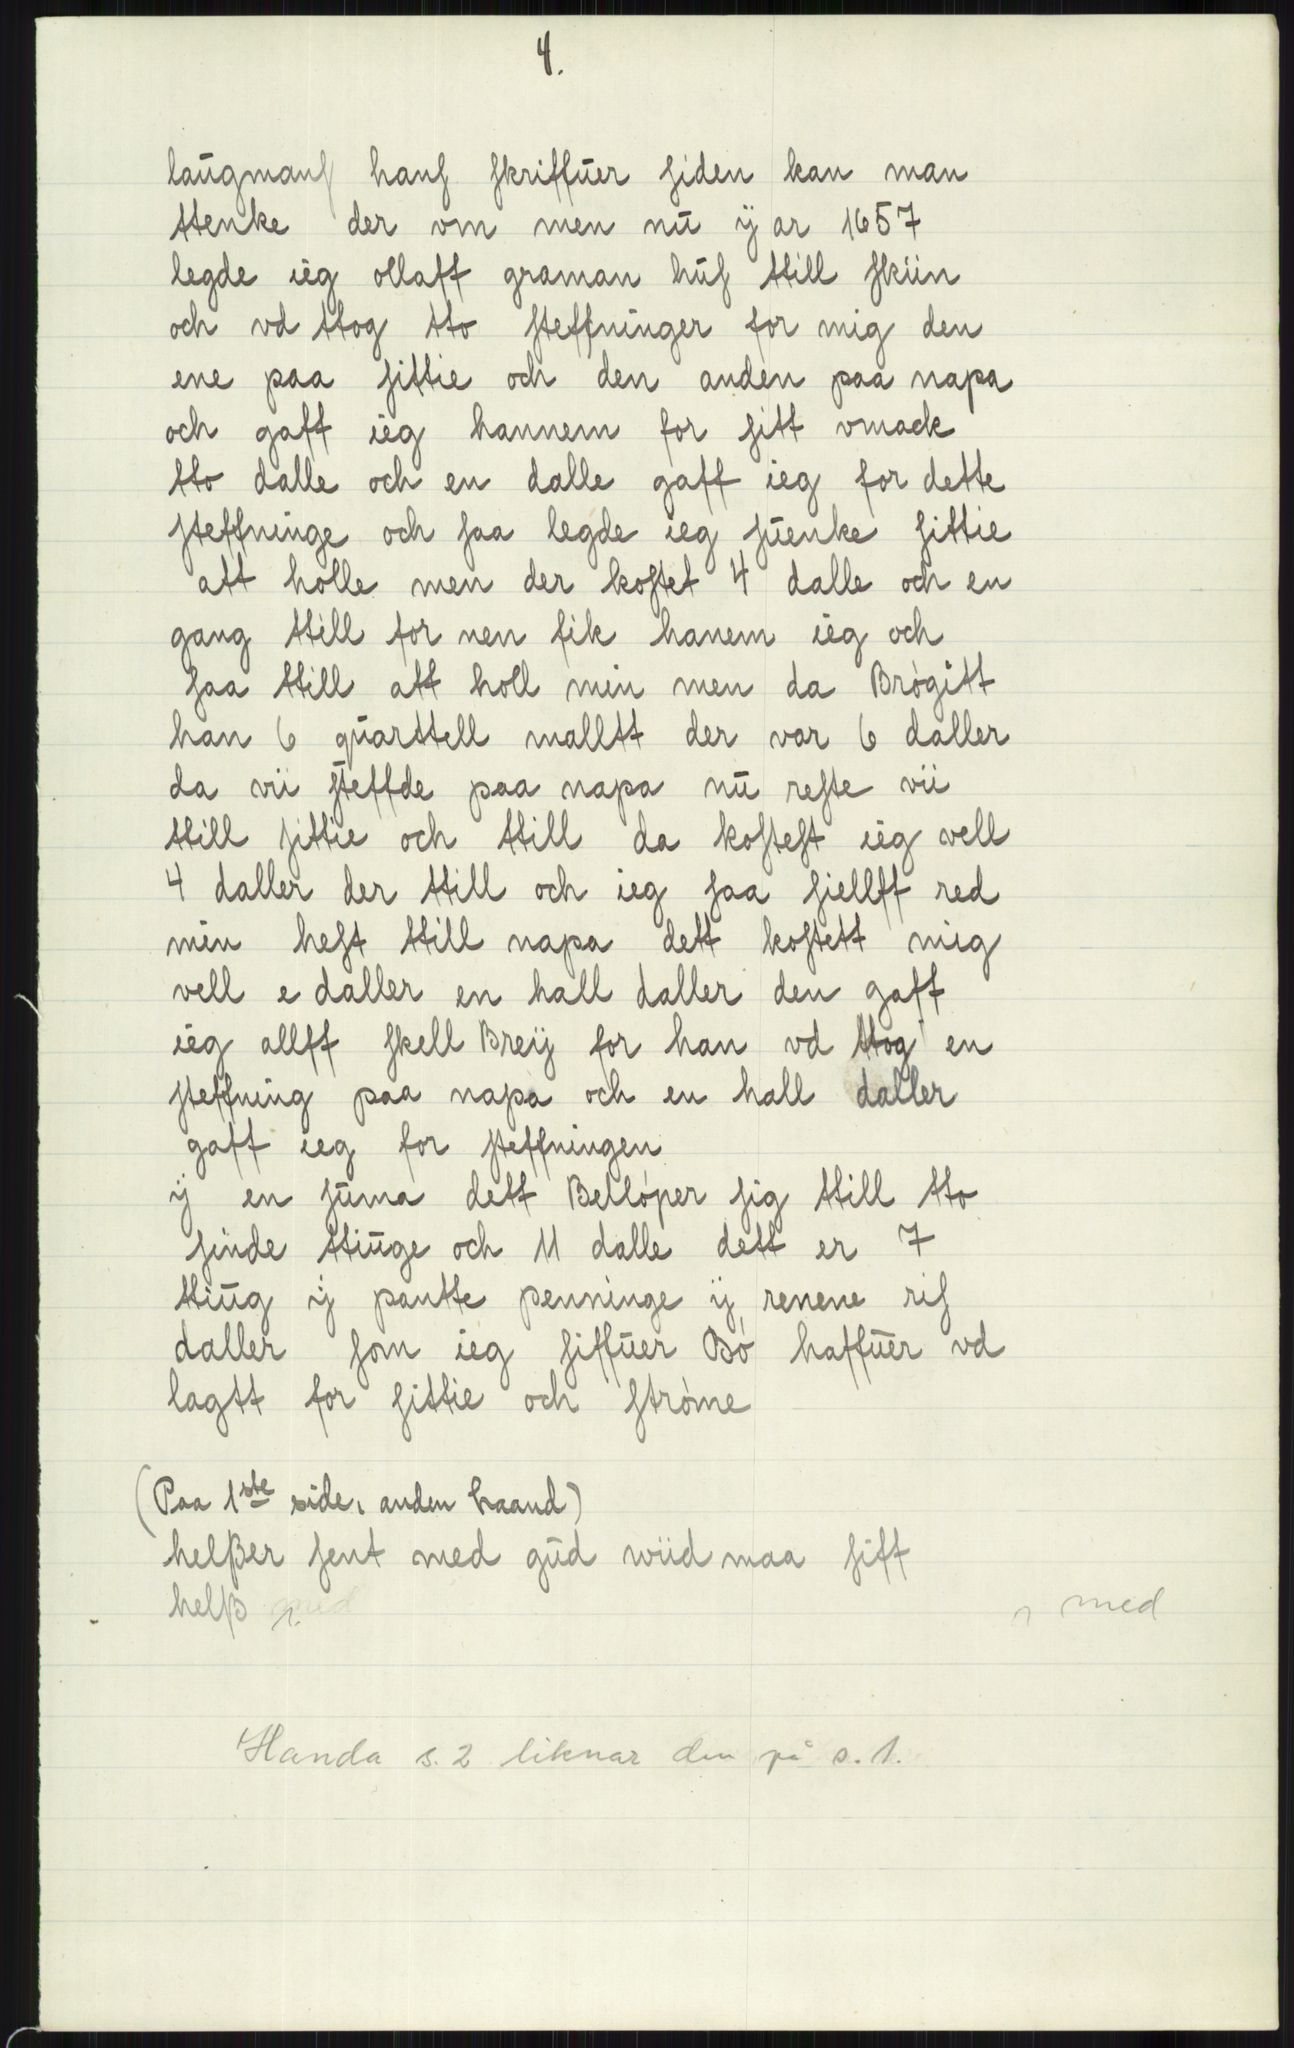 4.
laugmans hans skriffuer siden kan man
ttenke der vm men nu ÿ ar 1657
legde ieg ollaff graman hus ttill skiin
och vd ttog tto steffninger for mig den
ene paa sittie och den anden paa napa
och gaff ieg hannem for sitt vmack
tto dalle och en dalle gaff ieg for dette
steffninge och saa legde ieg suenke sittie
att holle men der kostet 4 dalle och en
gang ttill for nen fik hanem ieg och
saa ttill att holl min men da Brógitt
han 6 quarttell malltt der var 6 daller
da vii steffde paa napa nu reste vii
ttill sittie och ttill da kostest ieg vell
4 daller der ttill och ieg saa siellff red
min hest ttill napa dett kostett mig
vell e daller en hall daller den gaff
ieg allff skell Breÿ for han vd ttog en
steffning paa napa och en hall daller
gaff ieg for steffningen
ÿ en suma dett Bellóper sig ttill tto
sinde ttiuge och 11 dalle dett er 7
ttiug ÿ pantte penninge ÿ renene ris
daller som ieg siffuer Bó haffuer vd
lagtt for sittie och stróme
(Paa 1ste side, anden haand)
helßer sent med gud wiid maa siff
helß med
med
Handa s. 2 liknar den på s. 1.